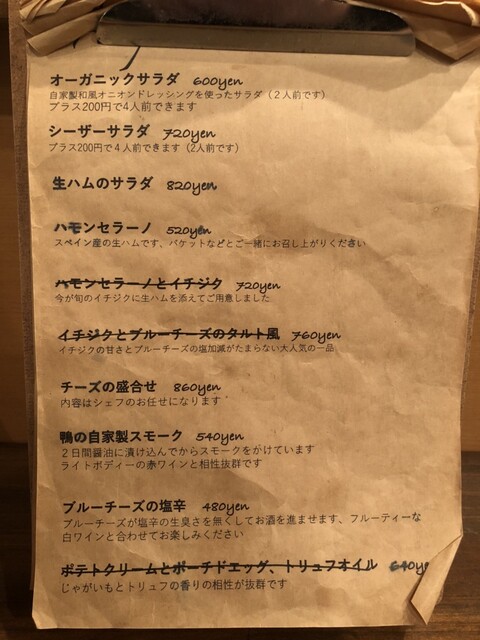 オーガニックサラダ 600yen
自家製和風オニオンドレッシングを使ったサラダ（２人前です）
プラス200円で4人前できます
シーザーサラダ 720yen
プラス200円で４人前できます（2人前です）
生ハムのサラダ 820yen
ハモンセラーノ 520yen
スペイン産の生ハムです、バケットなどとご一緒にお召し上がりください
ハモンセラーノとイチジク 720yen
今が旬のイチジクに生ハムを添えてご用意しました
イチジクとブルーチーズのタルト風 760yen
イチジクの甘さとブルーチーズの塩加減がたまらない大人気の一品
チーズの盛合せ 860yen
内容はシェフのお任せになります
鴨の自家製スモーク 540yen
２日間醤油に漬け込んでからスモークをかけています
ライトボディーの赤ワインと相性抜群です
ブルーチーズの塩辛 480yen
ブルーチーズが塩辛の生臭さを無くしてお酒を進ませます、フルーティーな
白ワインと合わせてお楽しみください
ポテトクリームとポーチドエッグ、トリュフオイル 640ye
じゃがいもとトリュフの香りの相性が抜群です